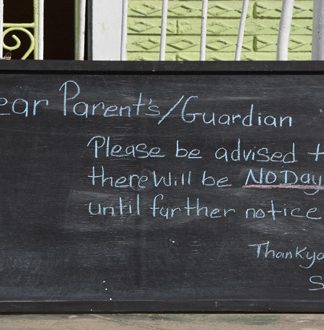 ear Parent's/Guardian
Please be advised t
there Will be NO Day
until further notice
Thankyo
S